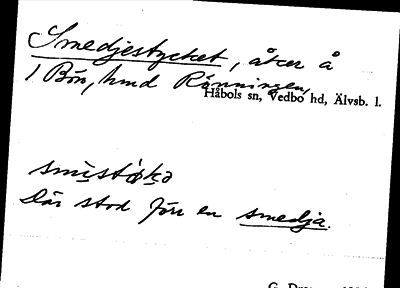 Smedjestycket, åker å
1 Bön, hmd Rönningen,
Håbols sn, Vedbo hd, Älvsb. l.
Där stod förr en smedja.